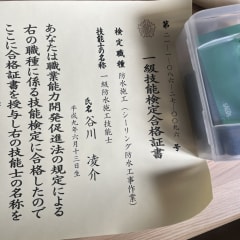 第二一-一-〇六二-二七-〇〇九六号
一級技能検定合格証書
検定職種 防水施工（シーリング防水工事作業）
技能士の名称 一級防水施工技能士
氏名 谷川 凌介
平成九年六月十三日生
あなたは職業能力開発促進法の規定による
右の職種に係る技能検定に合格したので
ここに合格証書を授与し右の技能士の名称を